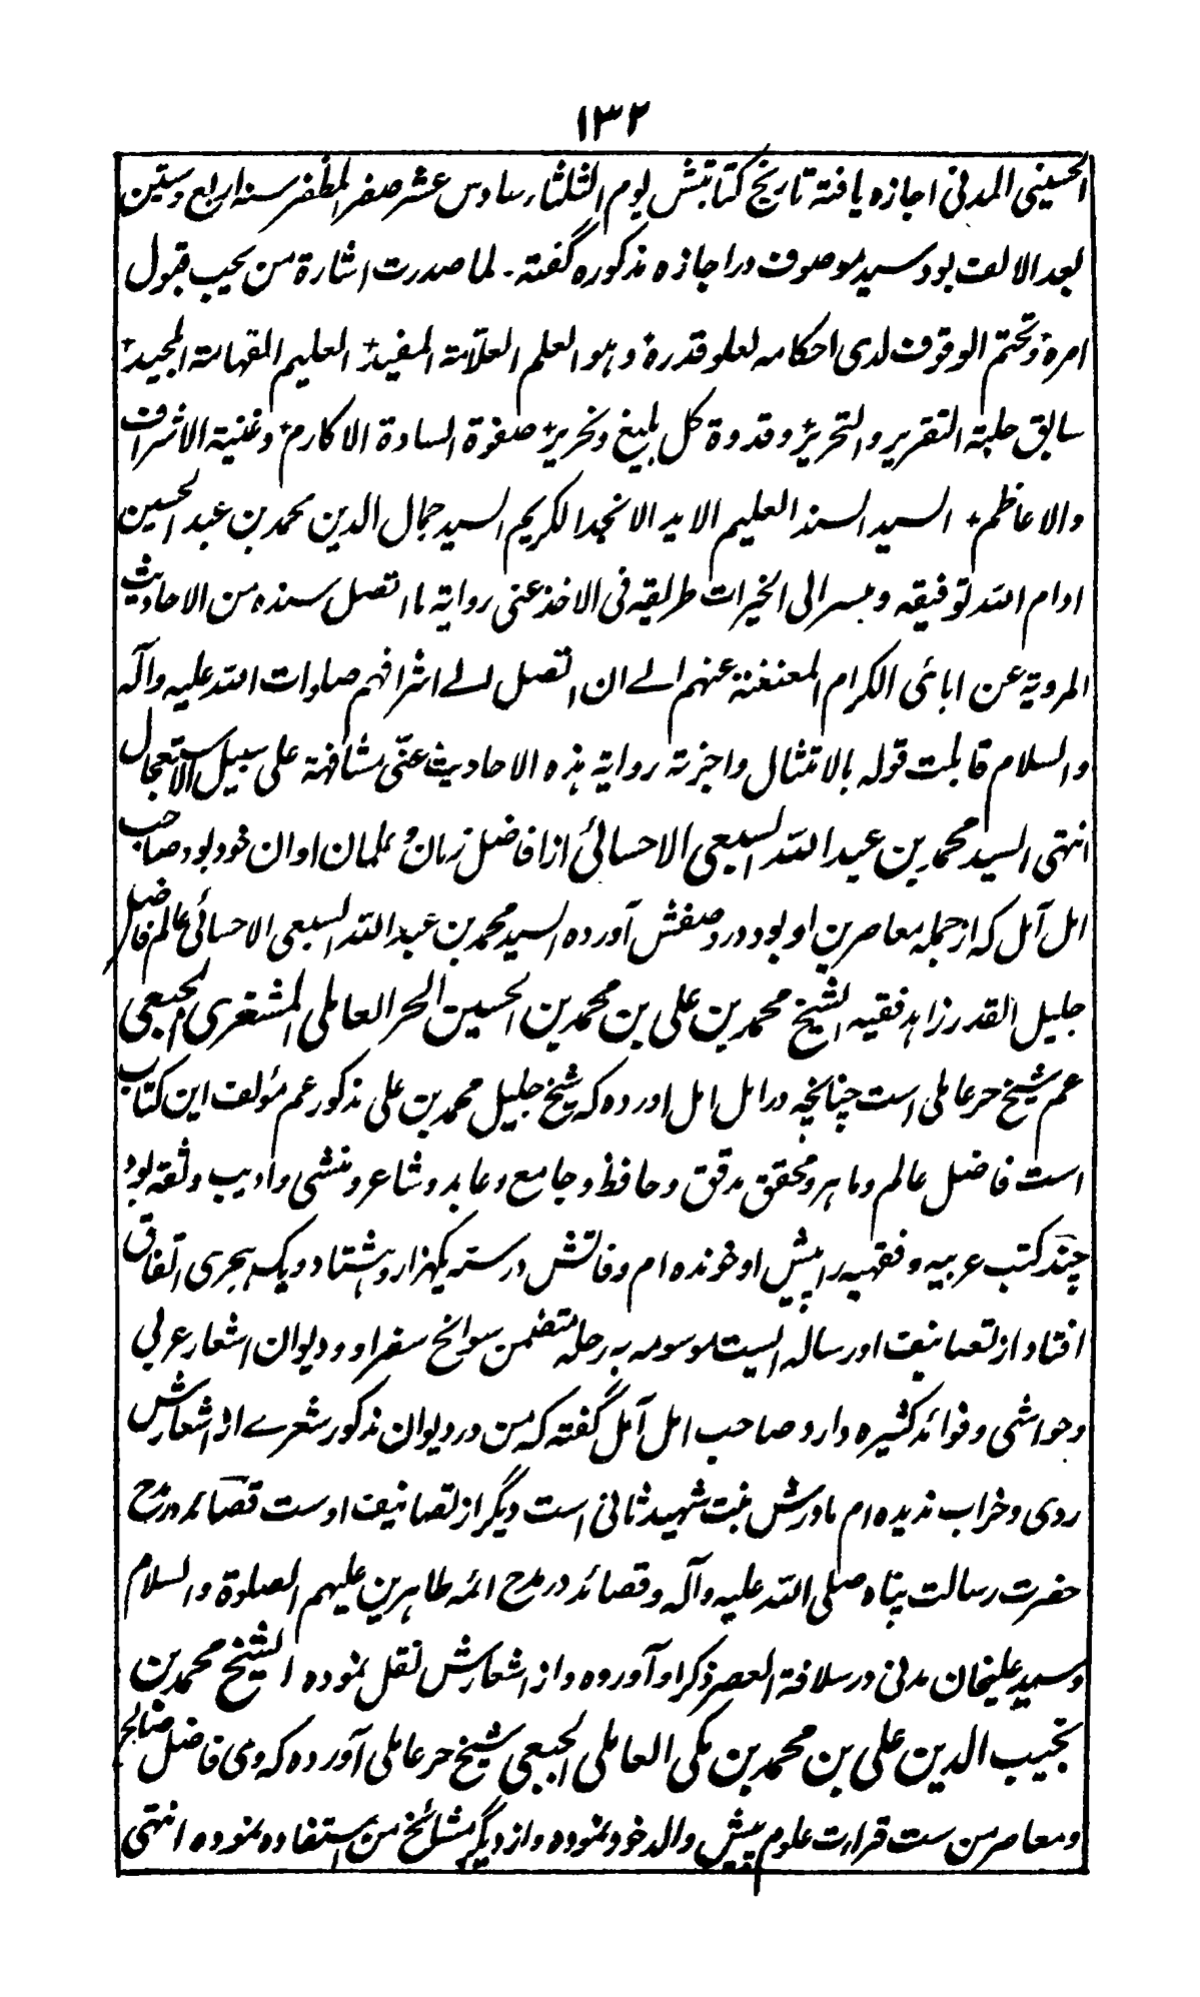 ۱۳۲
الحسینی المدنی اجازه یافته تاریخ کتابتش یوم الثلثا سادس عشر صفر المظفر سنه اربع و ستین
بعد الالف بود سید موصوف در اجازه مذکوره گفته۔ لما صدرت اشارة من یجب قبول
امره و تحتم الوقوف لدی احکامه لعلو قدره و هو العلم العلامة المفید العلیم الفهامة المجید
سابق حلبة التقریر و التحریر و قدوة کل بلیغ و نحریر صفوة السادة الاکارم و غنیة الاشراف
والاعاظم السید السند العلیم الاید الامجد الکریم السید جمال الدین محمد بن عبد الحسین
ادام الله توفیقه و یسر الی الخیرات طریقه فی الاخذ عنی روایة ما اتصل سنده من الاحادیث
المرویة عن ابائی الکرام المعنعنة عنهم الے ان اتصل الے اشرافهم صلوات الله علیه وآله
والسلام قابلت قوله بالامتثال واجزته روایة هذه الاحادیث عنّی مشافهة علی سبیل الاستعجال
انتهی السید محمد بن عبد الله السبعی الاحسائی از افاضل زمان و علمان اوان خود بود صاحب
امل آمل که از جمله معاصرین او بود در وصفش آورده السید محمد بن عبد الله السبعی الاحسائی عالم فاضل
جلیل القدر زاهد فقیه الشیخ محمد بن علی بن محمد بن الحسین الحر العاملی المشغری الجبعی
عم شیخ حر عاملی است چنانچه در امل امل اورده که شیخ جلیل محمد بن علی مذکور عم مؤلف این کتاب
است فاضل عالم و ماهر و محقق مدقق و حافظ و جامع و عابد و شاعر و منشی و ادیب و ثقه بود
چند کتب عربیه و فقهیه را پیش او خونده ام و فاتش در سنه یکهزار و هشتاد و یک هجری اتفاق
افتاد از تصانیف او رساله ایست موسومه به رحله متضمن سوانح سفر او و دیوان اشعار عربی
و حواشی و فوائد کثیره دارد صاحب امل آمل گفته که من در دیوان مذکور شعرے از اشعارش
ردی و خراب ندیده ام مادرش بنت شهید ثانی است دیگر از تصانیف اوست قصائد در مدح
حضرت رسالت پناه صلی الله علیه وآله و قصائد در مدح ائمه طاهرین علیهم الصلوة والسلام
و سید علیخان مدنی در سلافة العصر ذکر او آورده و از اشعارش نقل نموده الشیخ محمد بن
نجیب الدین علی بن محمد بن مکی العاملی الجبعی شیخ حر عاملی آورده که وی فاضل صالح
و معاصر من ست قراءت علوم پیش والد خود نموده و از دیگر مشائخ من استفاده نموده انتهی